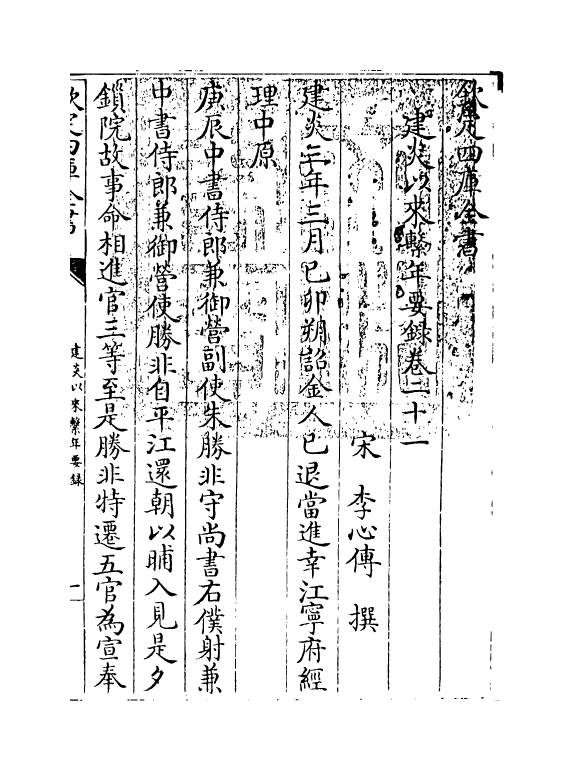 欽定四庫全書
建炎以來繫年要錄卷二十一
宋 李心傳 撰
建炎三年三月己卯朔詔金人已退當進幸江寧府經
理中原
庚辰中書侍郎兼御營副使朱勝非守尚書右僕射兼
中書侍郎兼御營使勝非自平江還朝以晡入見是夕
鎖院故事命相進官三等至是勝非特遷五官為宣奉
欽定四庫全書
建炎以來繫年要錄
一